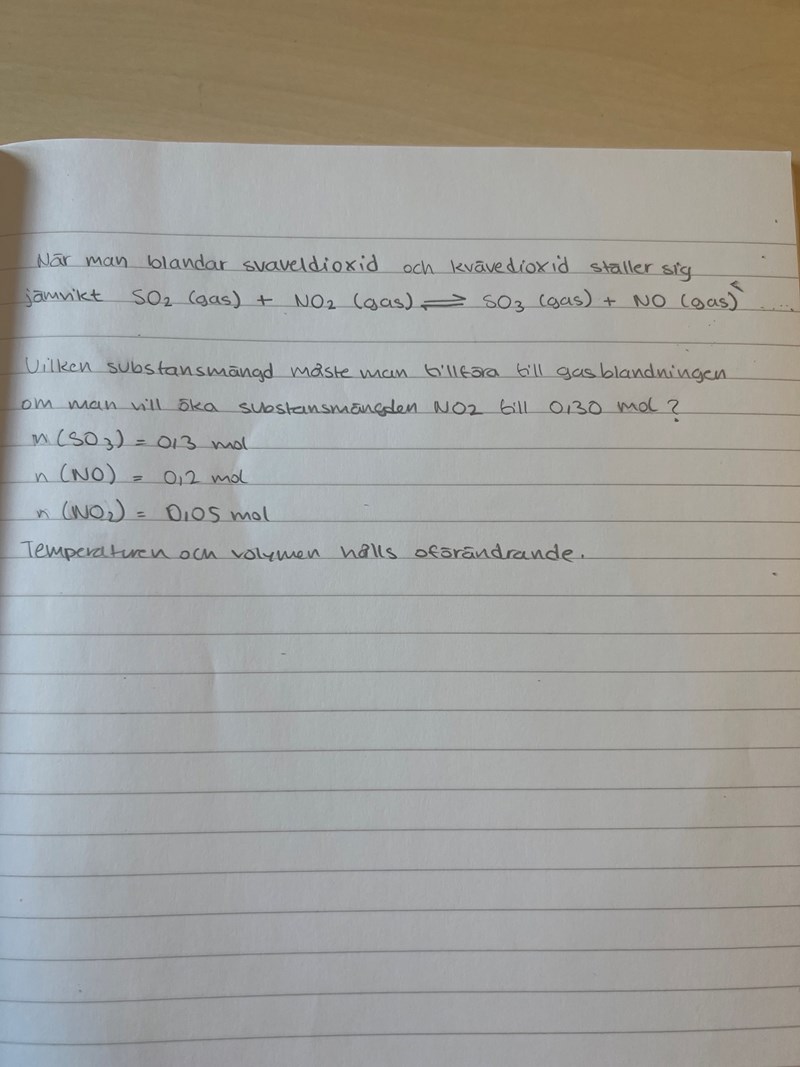 När man blandar svaveldioxid och kvävedioxid ställer sig
jämvikt SO₂ (gas) + NO₂ (gas) ⇌ SO₃ (gas) + NO (gas) .....
Vilken substansmängd måste man tillföra till gasblandningen
om man vill öka substansmängden NO2 till 0,30 mol?
n (SO₃) = 0,3 mol
n (NO) = 0,2 mol
n (NO₂) = 0,05 mol
Temperaturen och volymen hålls oförändrande.